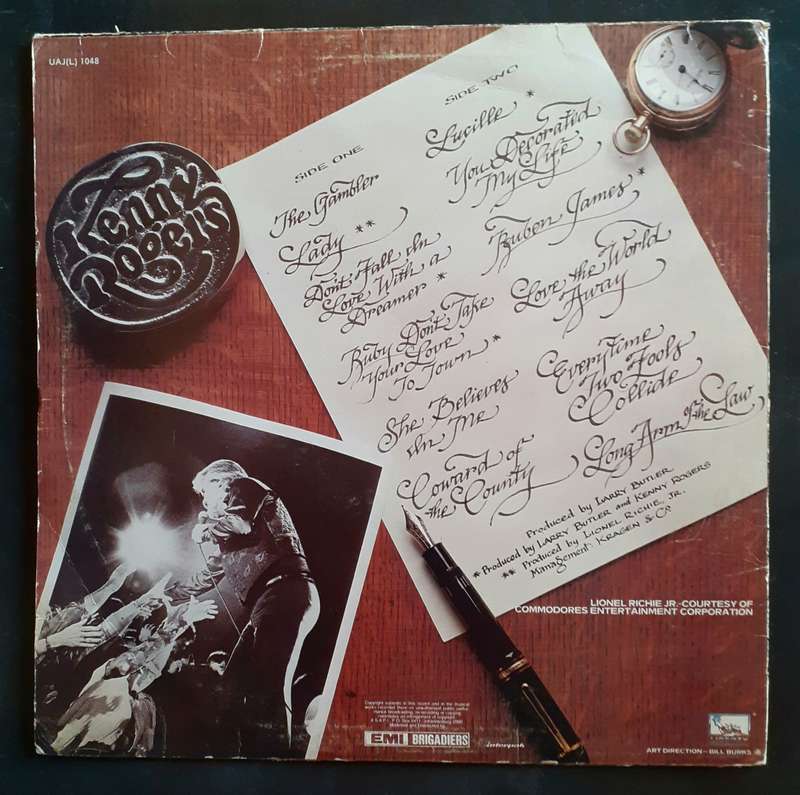 UAJ(L) 1048
Kenny
Rogers
SIDE ONE
The Gambler
Lady **
Don't Fall In
Love With a
Dreamer *
Ruby Don't Take
Your Love
To Town *
She Believes
In Me
Coward of
the County
SIDE TWO
Lucille *
You Decorated
My Life
Ruben James *
Love the World
Away
Everytime
Two Fools
Collide
Long Arm of the Law
Produced by LARRY BUTLER
* Produced by LARRY BUTLER and KENNY ROGERS
** Produced by LIONEL RICHIE, JR.
Management: KRAGEN & CO
LIONEL RICHIE JR.-COURTESY OF
COMMODORES ENTERTAINMENT CORPORATION
EMI BRIGADIERS
interpak
LIBERTY
ART DIRECTION - BILL BURKS